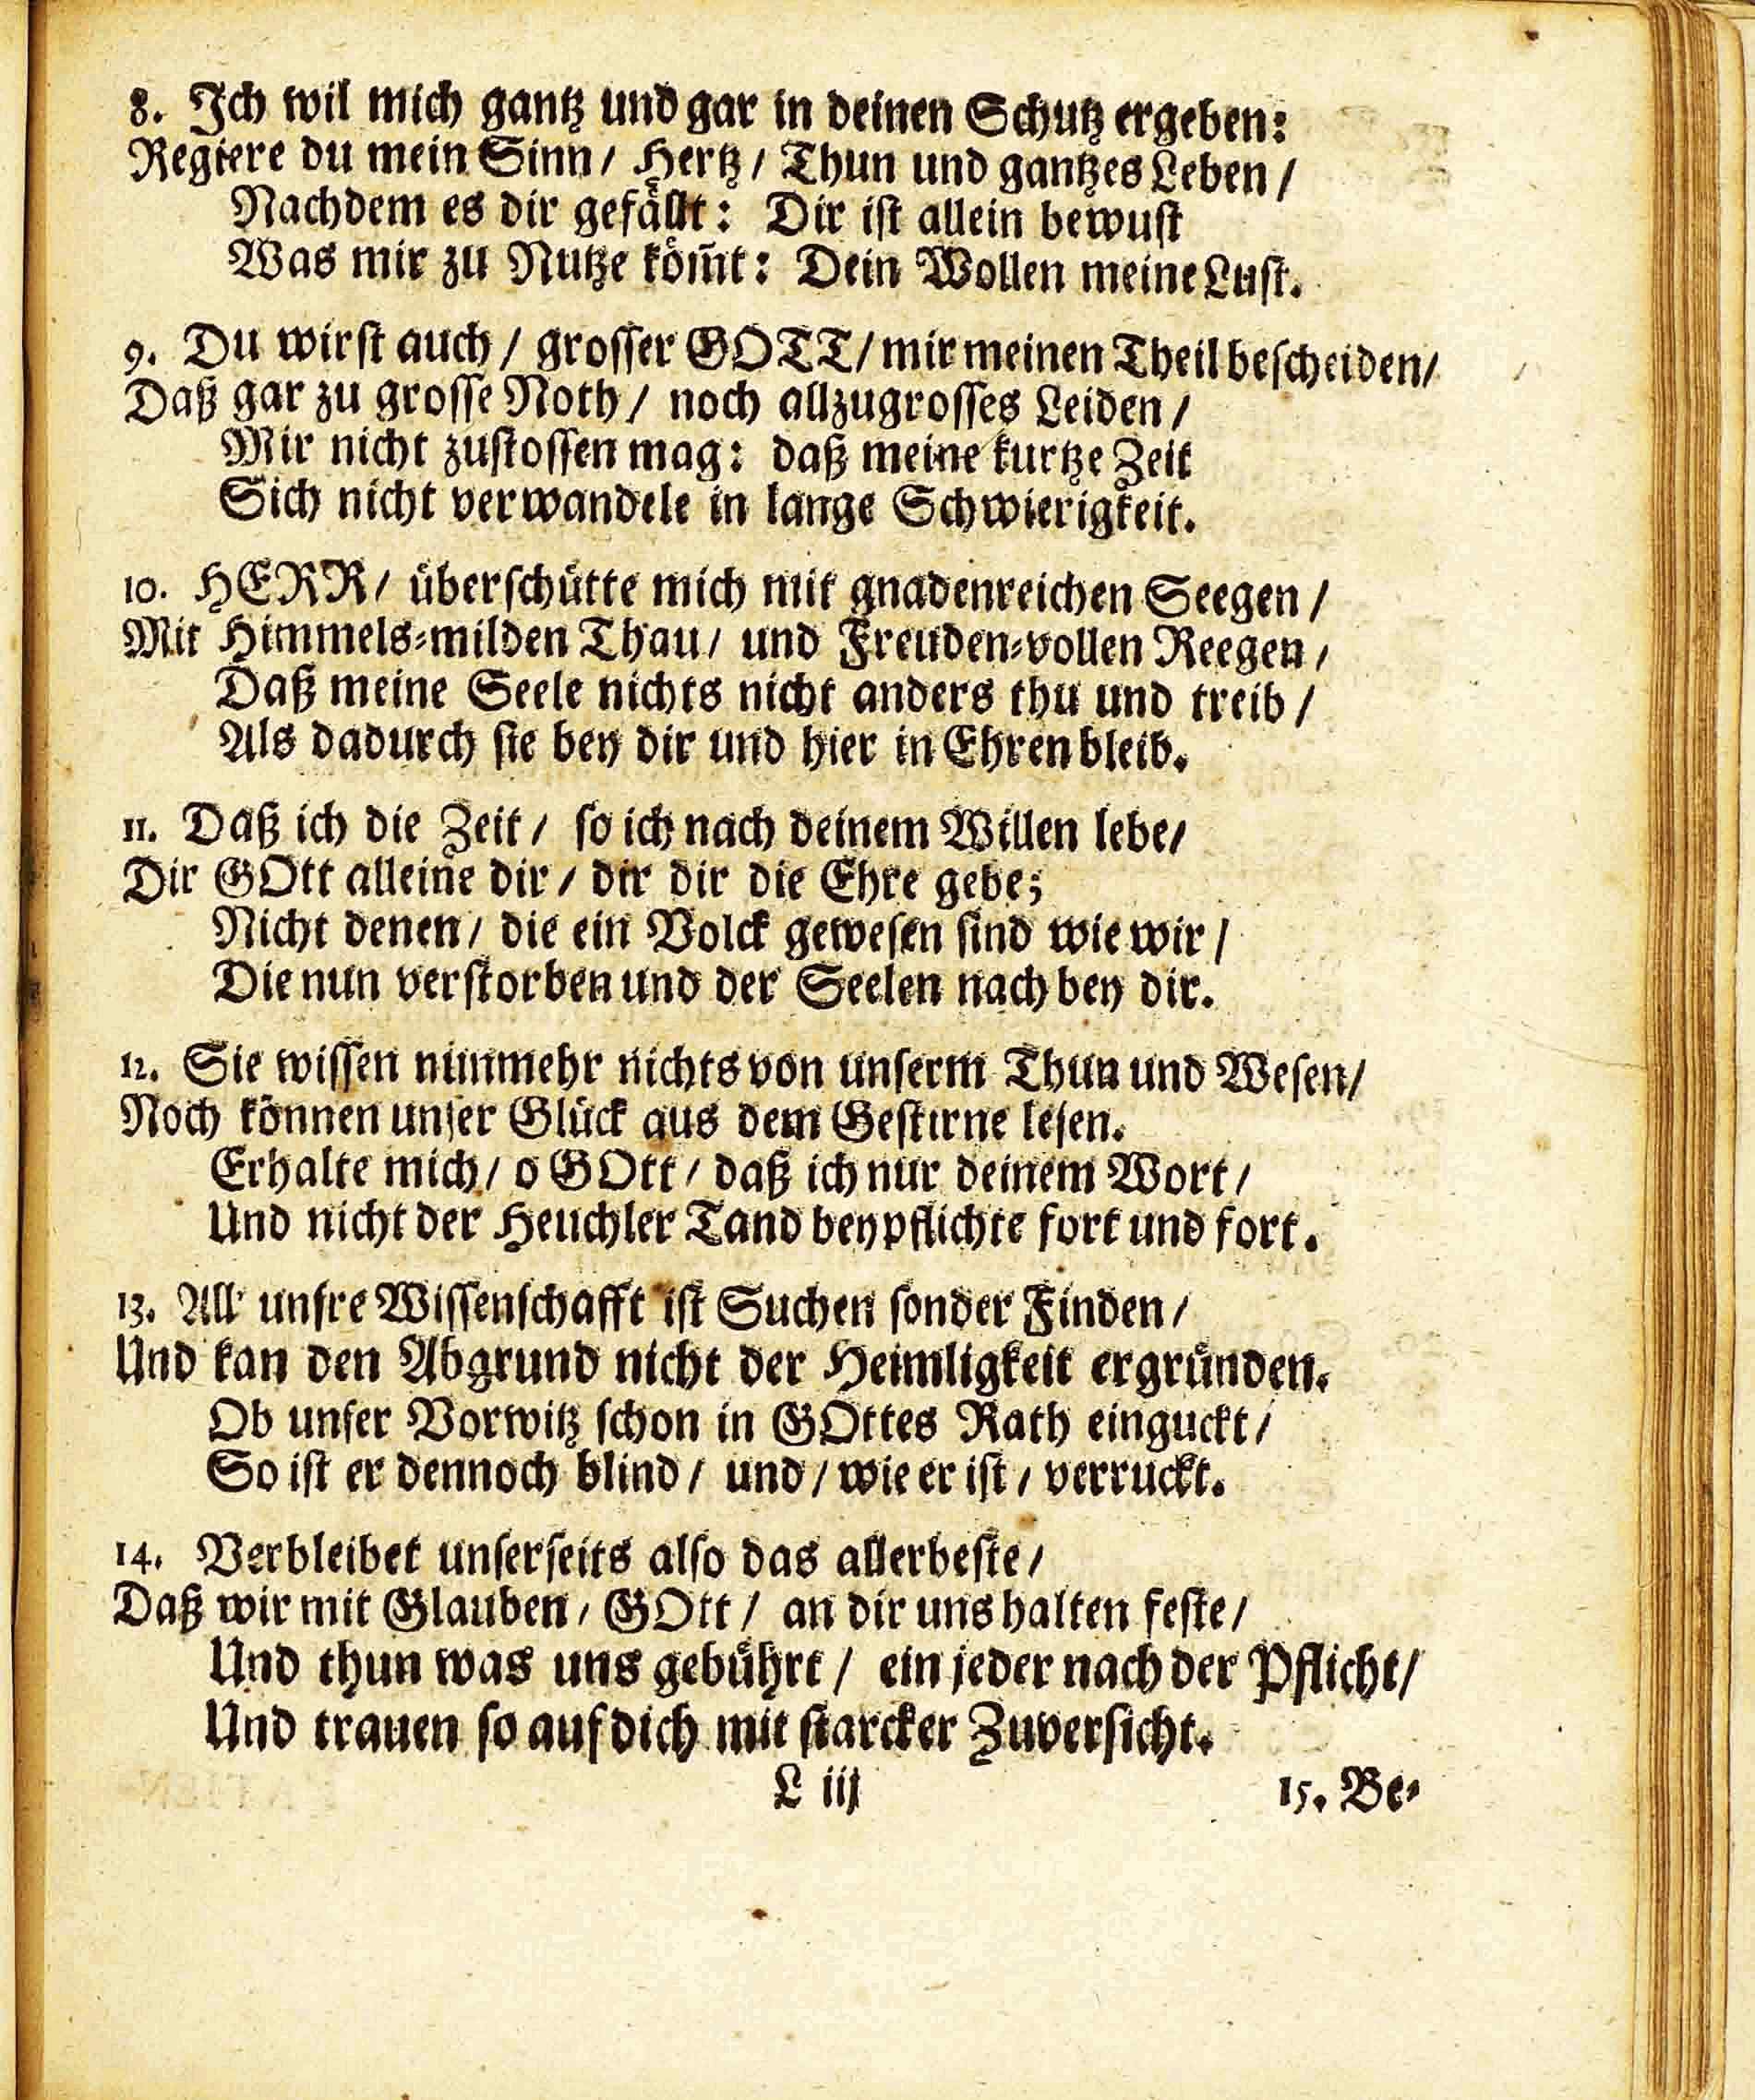 8. Ich wil mich gantz und gar in deinen Schutz ergeben:
Regiere du mein Sinn/ Hertz/ Thun und gantzes Leben/
Nachdem es dir gefaͤllt: Dir ist allein bewust
Was mir zu Nutze koͤm̃t: Dein Wollen meine Lust.
9. Du wirst auch/ grosser GOTT/ mir meinen Theil bescheiden/
Daß gar zu grosse Noth/ noch allzugrosses Leiden/
Mir nicht zustossen mag: daß meine kurtze Zeit
Sich nicht verwandele in lange Schwierigkeit.
10. HERR/ uͤberschuͤtte mich mit gnadenreichen Seegen/
Mit Himmels-milden Thau/ und Freuden-vollen Reegen/
Daß meine Seele nichts nicht anders thu und treib/
Als dadurch sie bey dir und hier in Ehren bleib.
11. Daß ich die Zeit/ so ich nach deinem Willen lebe/
Dir GOtt alleine dir/ dir dir die Ehre gebe;
Nicht denen/ die ein Volck gewesen sind wie wir/
Die nun verstorben und der Seelen nach bey dir.
12. Sie wissen nunmehr nichts von unserm Thun und Wesen/
Noch koͤnnen unser Gluͤck aus dem Gestirne lesen.
Erhalte mich/ o GOtt/ daß ich nur deinem Wort/
Und nicht der Heuchler Tand beypflichte fort und fort.
13. All' unsre Wissenschafft ist Suchen sonder Finden/
Und kan den Abgrund nicht der Heimligkeit ergruͤnden.
Ob unser Vorwitz schon in GOttes Rath einguckt/
So ist er dennoch blind/ und/ wie er ist/ verruckt.
14. Verbleibet unserseits also das allerbeste/
Daß wir mit Glauben/ GOtt/ an dir uns halten feste/
Und thun was uns gebuͤhrt/ ein jeder nach der Pflicht/
Und trauen so auf dich mit starcker Zuversicht.
L iij
15. Be-